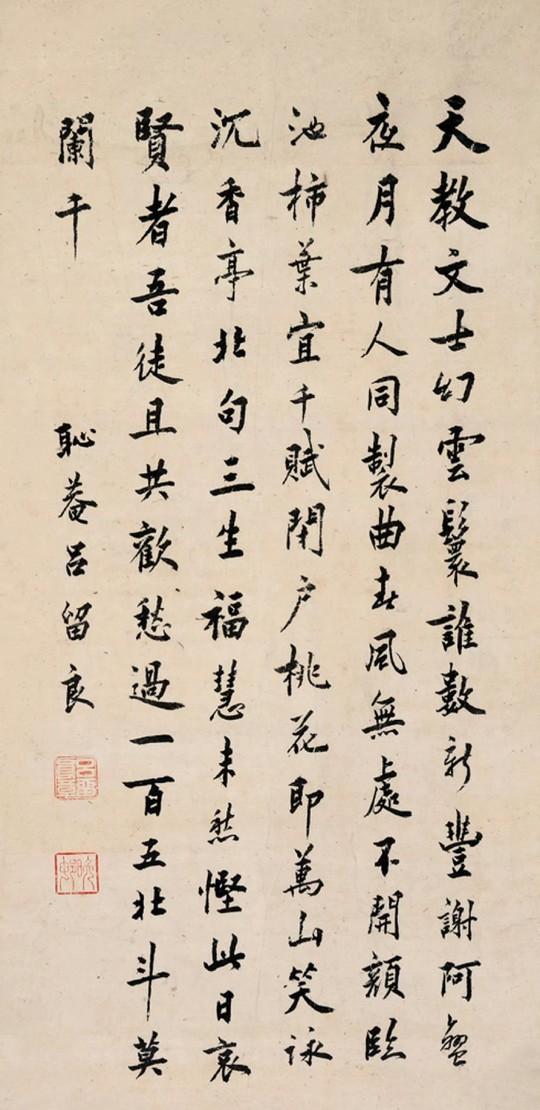 天教文士幻雲鬟誰數新豐謝阿蠻
夜月有人同製曲春風無處不開顏臨
池柿葉宜千賦閉戶桃花即萬山笑詠
沉香亭北句三生福慧未愁慳此日衰
賢者吾徒且共歡愁過一百五北斗莫
闌干
恥菴呂留良
晚邨